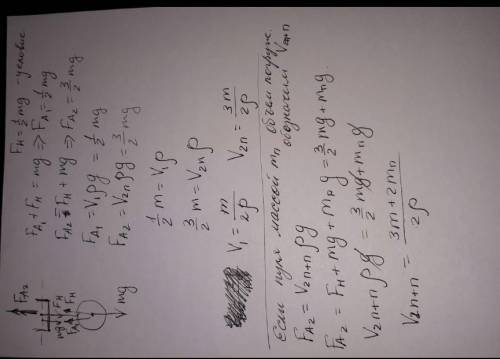 F_H = ½mg - условие
F_A1 + F_H = mg ⇒ F_A1 = ½mg
F_A2 = F_H + mg ⇒ F_A2 = 3/2 mg
F_A1 = V₁ρg = ½mg
F_A2 = V₂ₙρg = 3/2 mg
½m = V₁ρ
3/2 m = V₂ₙρ
V₁ = m/2ρ V₂ₙ = 3m/2ρ
Если пуля массой mₙ объём погруж.
обозначим V₂ₙ₊ₙ
F_A2 = V₂ₙ₊ₙρg
F_A2 = F_H + mg + mₙg = 3/2 mg + mₙg
V₂ₙ₊ₙρg = 3/2 mg + mₙg
V₂ₙ₊ₙ = 3m + 2mₙ/2ρ
F_A2
mg
F_H
F_A1
F_H
mg